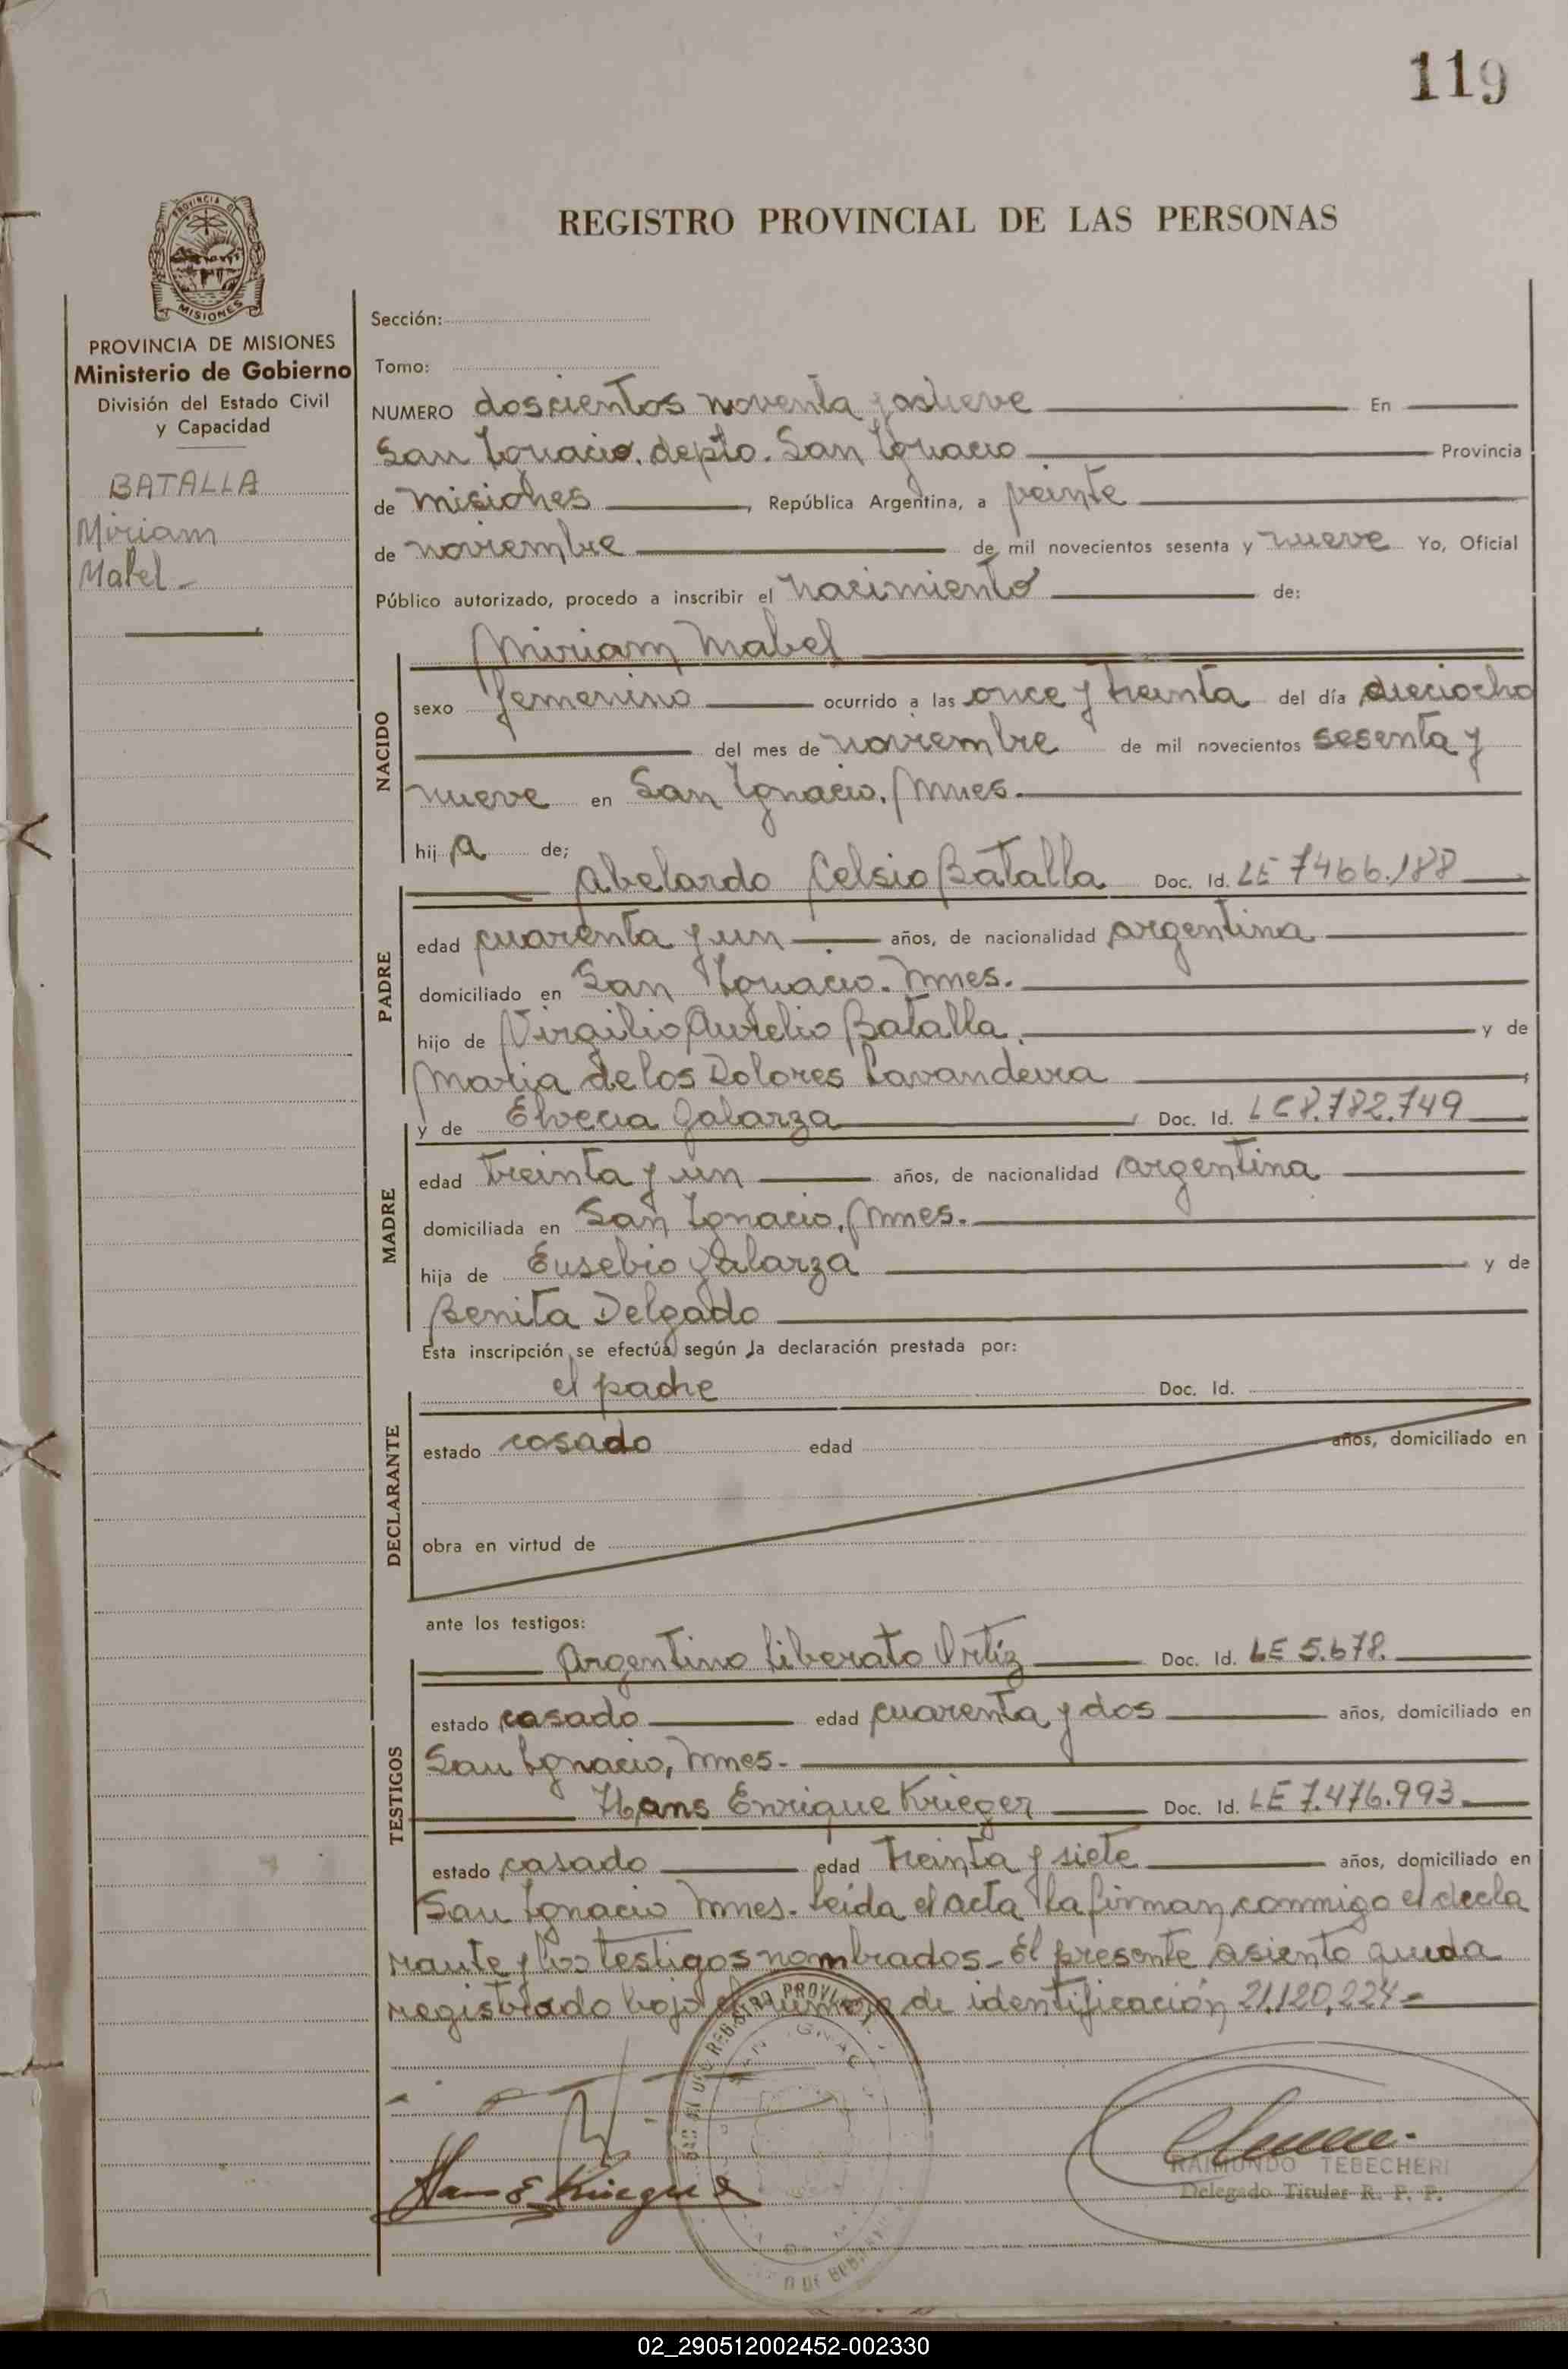 119
PROVINCIA DE
MISIONES
REGISTRO PROVINCIAL DE LAS PERSONAS
PROVINCIA DE MISIONES
Ministerio de Gobierno
División del Estado Civil
y Capacidad
BATALLA
Miriam
Mabel -
Sección:
Tomo:
NUMERO doscientos noventa y nueve En
San Ignacio. depto. San Ignacio Provincia
de Misiones, República Argentina, a veinte
de noviembre de mil novecientos sesenta y nueve Yo, Oficial
Público autorizado, procedo a inscribir el nacimiento de:
Miriam Mabel
NACIDO
sexo femenino ocurrido a las once y treinta del día dieciocho
del mes de noviembre de mil novecientos sesenta y
nueve en San Ignacio, Mnes.
hij a de;
Abelardo Celsio Batalla Doc. Id. LE 7466.188
PADRE
edad cuarenta y un años, de nacionalidad argentina
domiciliado en San Ignacio. Mnes.
hijo de Virgilio Aurelio Batalla. y de
Maria de los Dolores Lavandeira
y de Elvecia Galarza Doc. Id. LC 8.782.749
MADRE
edad treinta y un años, de nacionalidad argentina
domiciliada en San Ignacio, Mnes.
hija de Eusebio Galarza y de
Benita Delgado
Esta inscripción se efectúa según la declaración prestada por:
el padre Doc. Id.
DECLARANTE
estado casado edad años, domiciliado en
obra en virtud de
ante los testigos:
Argentino Liberato Ortiz Doc. Id. LE 5.678.
TESTIGOS
estado casado edad cuarenta y dos años, domiciliado en
San Ignacio, Mnes.
Hans Enrique Krieger Doc. Id. LE 7.476.993
estado casado edad treinta y siete años, domiciliado en
San Ignacio Mnes. Leída el acta la firman conmigo el decla
rante y los testigos nombrados. El presente asiento queda
registrado bajo el número de identificación 21.120.224
Hans E Krieger
RAIMUNDO TEBECHERI
Delegado Titular R. P. P.
02_290512002452-002330